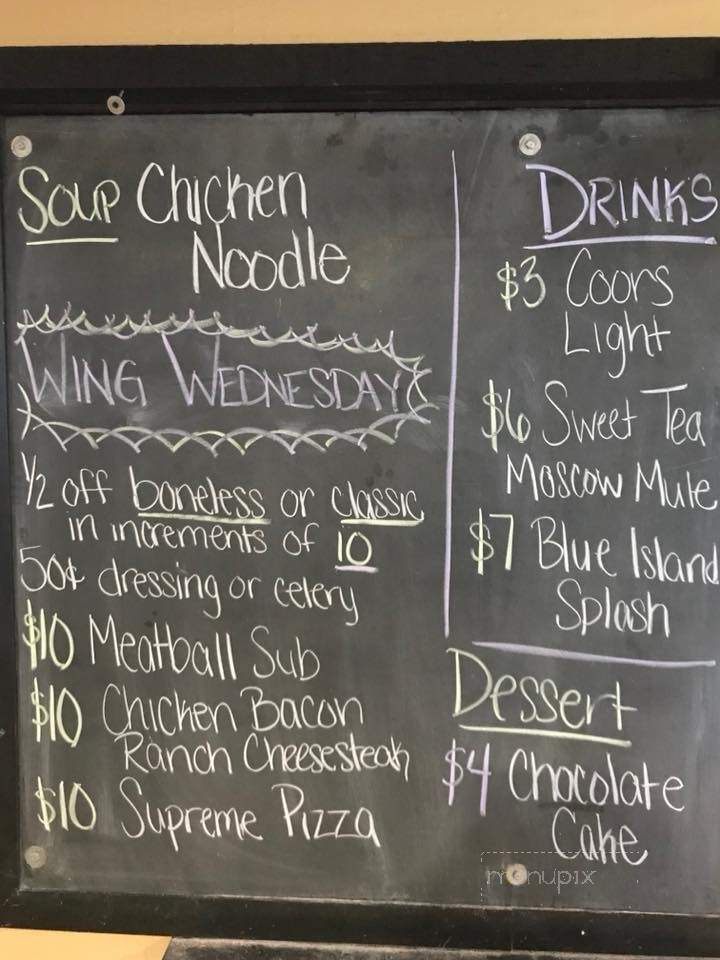 Soup Chicken
Noodle
Wing Wednesday
1/2 off boneless or classic
in increments of 10
50¢ dressing or celery
$10 Meatball Sub
$10 Chicken Bacon
Ranch Cheesesteak
$10 Supreme Pizza
Drinks
$3 Coors
Light
$6 Sweet Tea
Moscow Mule
$7 Blue Island
Splash
Dessert
$4 Chocolate
Cake
menupix